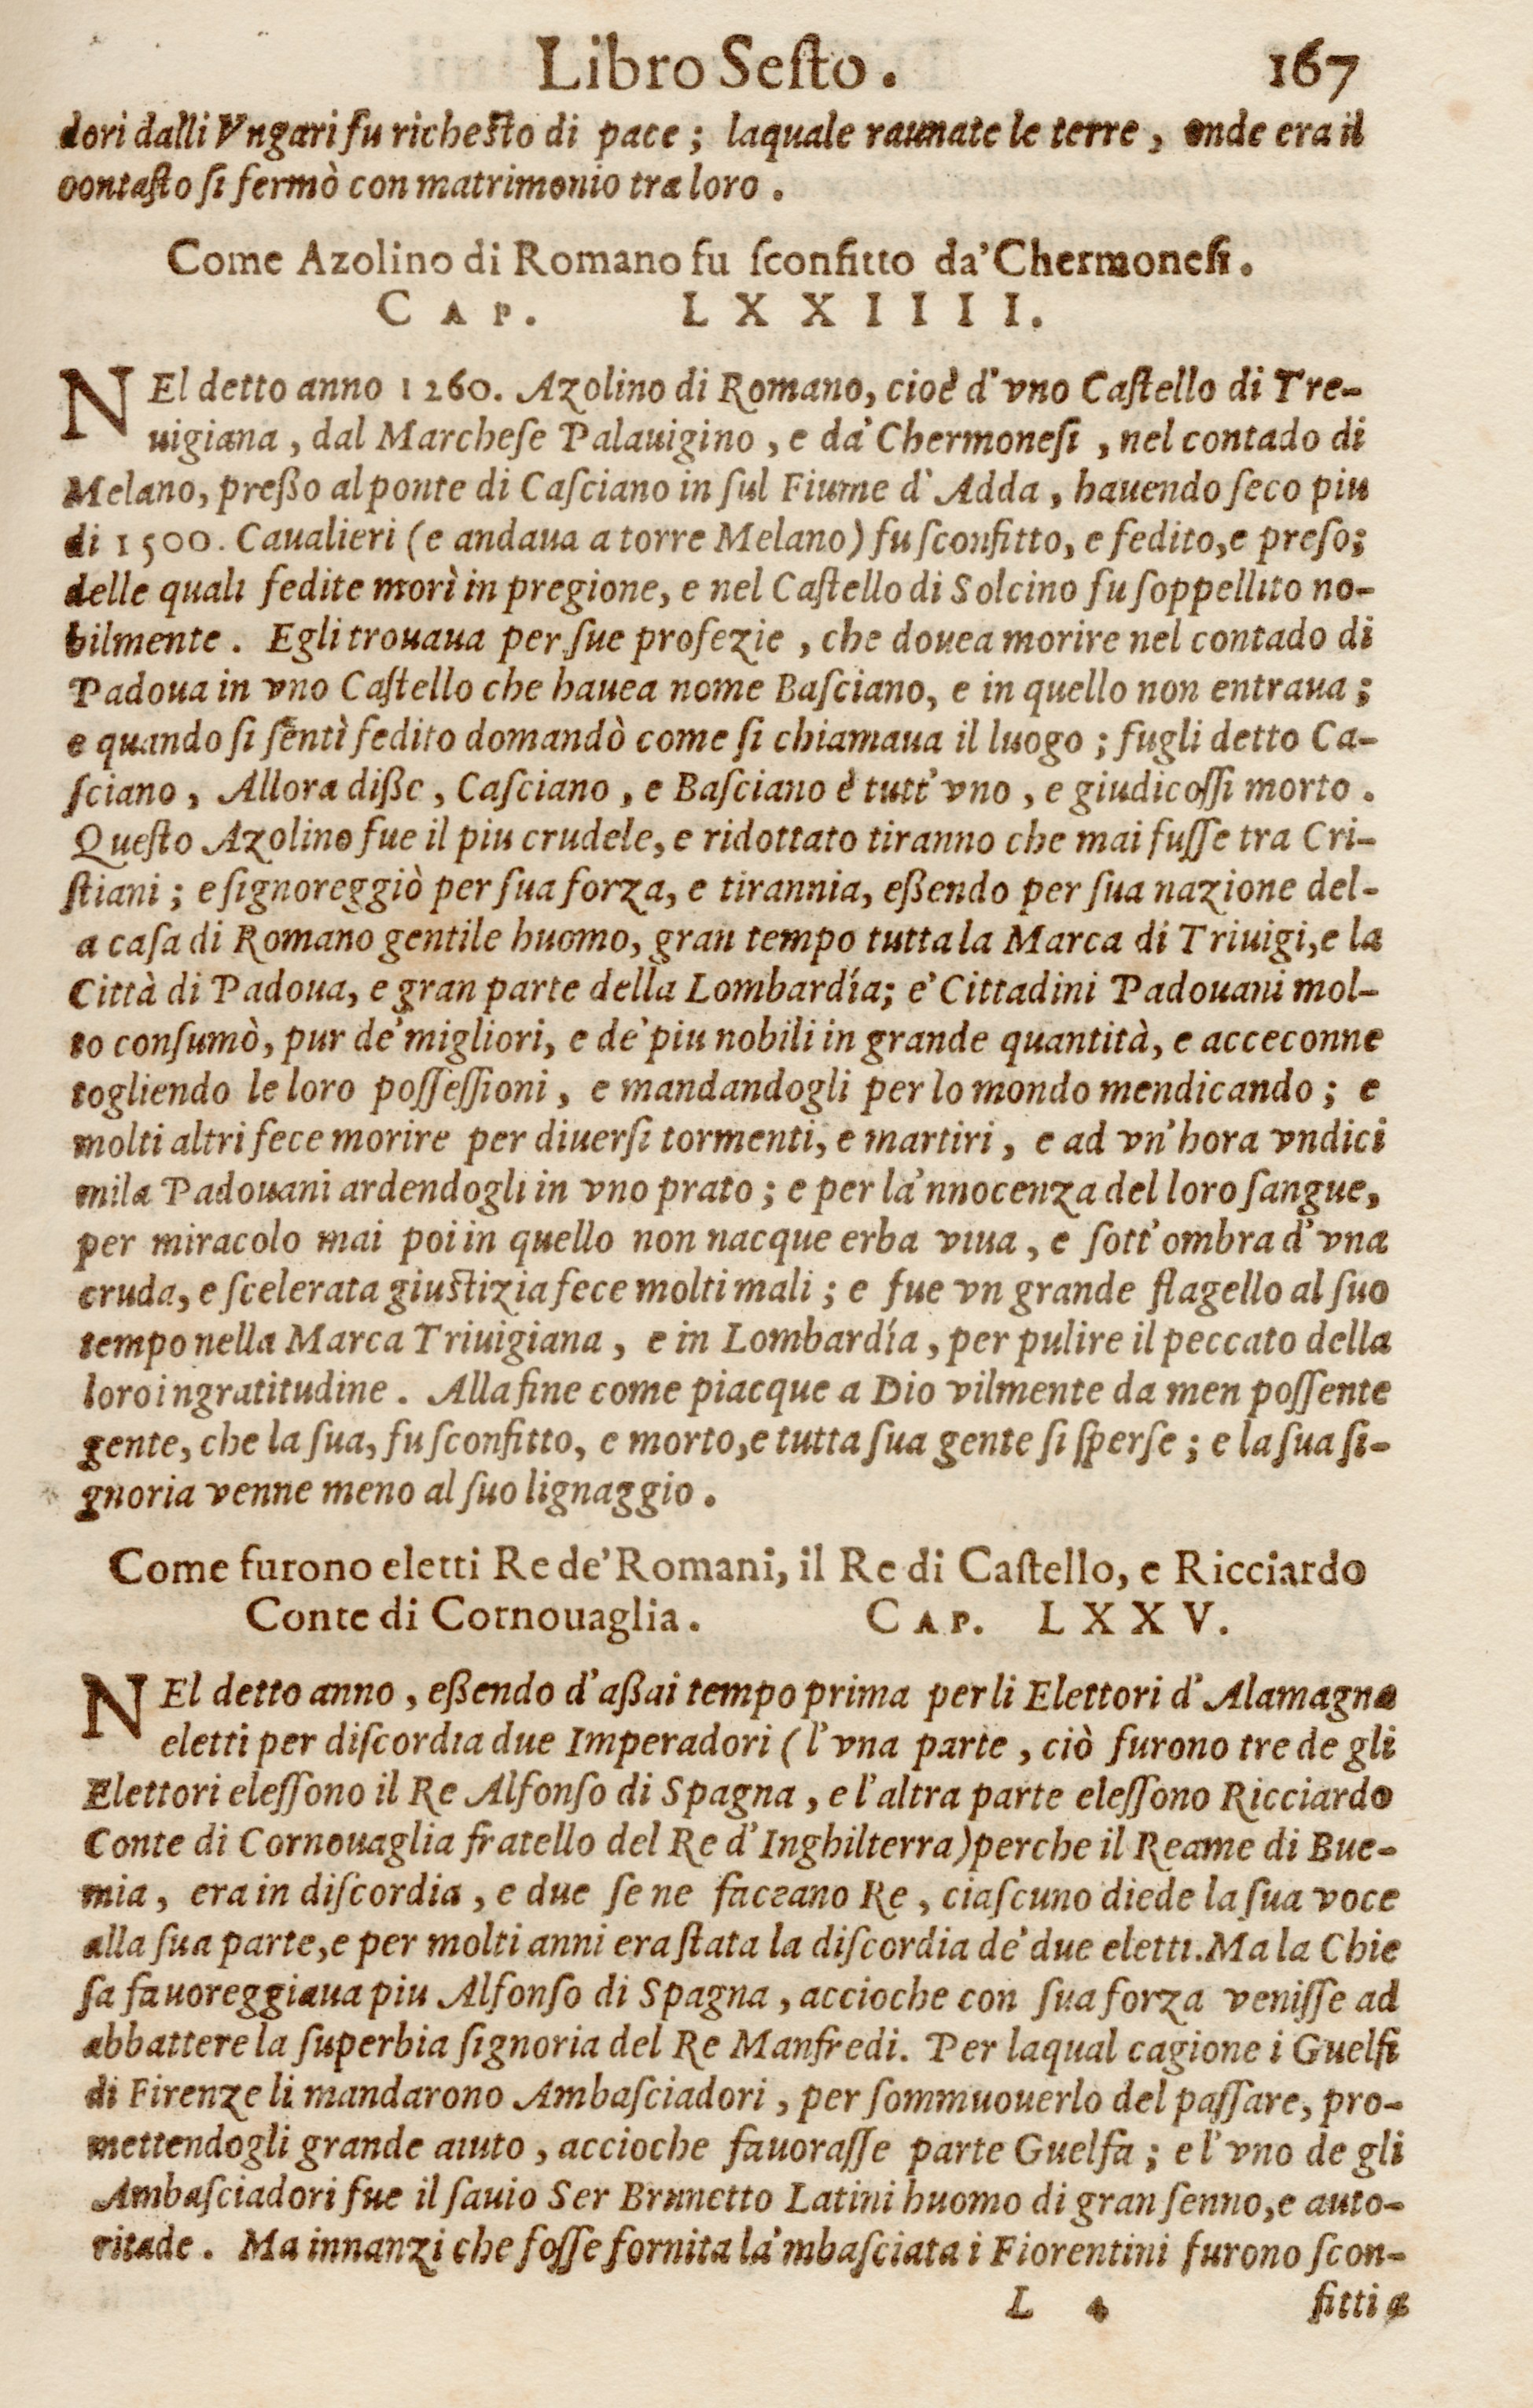 Libro Sesto. 167
dori dalli Vngari fu richesto di pace; laquale raunate le terre, onde era il
contasto si fermò con matrimonio tra loro.
Come Azolino di Romano fu sconfitto da'Chermonesi.
CAP. LXXIIII.
NEl detto anno 1260. Azolino di Romano, cioè d'vno Castello di Tre-
uigiana, dal Marchese Palauigino, e da' Chermonesi, nel contado di
Melano, presso al ponte di Casciano in sul Fiume d'Adda, hauendo seco piu
di 1500. Caualieri (e andaua a torre Melano) fu sconfitto, e fedito, e preso;
delle quali fedite morì in pregione, e nel Castello di Solcino fu soppellito no-
bilmente. Egli trouaua per sue profezie, che douea morire nel contado di
Padoua in vno Castello che hauea nome Basciano, e in quello non entraua;
e quando si sentì fedito domandò come si chiamaua il luogo; fugli detto Ca-
sciano, Allora disse, Casciano, e Basciano è tutt'vno, e giudicossi morto.
Questo Azolino fue il piu crudele, e ridottato tiranno che mai fusse tra Cri-
stiani; e signoreggiò per sua forza, e tirannia, essendo per sua nazione del-
a casa di Romano gentile huomo, gran tempo tutta la Marca di Triuigi, e la
Città di Padoua, e gran parte della Lombardía; e' Cittadini Padouani mol-
to consumò, pur de' migliori, e de' piu nobili in grande quantità, e acceconne
togliendo le loro possessioni, e mandandogli per lo mondo mendicando; e
molti altri fece morire per diuersi tormenti, e martiri, e ad vn'hora vndici
mila Padouani ardendogli in vno prato; e per la'nnocenza del loro sangue,
per miracolo mai poi in quello non nacque erba viua, e sott'ombra d'vna
cruda, e scelerata giustizia fece molti mali; e fue vn grande flagello al suo
tempo nella Marca Triuigiana, e in Lombardía, per pulire il peccato della
loro ingratitudine. Alla fine come piacque a Dio vilmente da men possente
gente, che la sua, fu sconfitto, e morto, e tutta sua gente si sperse; e la sua si-
gnoria venne meno al suo lignaggio.
Come furono eletti Re de' Romani, il Re di Castello, e Ricciardo
Conte di Cornouaglia. CAP. LXXV.
NEl detto anno, essendo d'assai tempo prima per li Elettori d'Alamagna
eletti per discordia due Imperadori (l'vna parte, ciò furono tre de gli
Elettori elessono il Re Alfonso di Spagna, e l'altra parte elessono Ricciardo
Conte di Cornouaglia fratello del Re d'Inghilterra) perche il Reame di Bue-
mia, era in discordia, e due se ne faceano Re, ciascuno diede la sua voce
alla sua parte, e per molti anni era stata la discordia de' due eletti. Ma la Chie
sa fauoreggiaua piu Alfonso di Spagna, accioche con sua forza venisse ad
abbattere la superbia signoria del Re Manfredi. Per laqual cagione i Guelfi
di Firenze li mandarono Ambasciadori, per sommuouerlo del passare, pro-
mettendogli grande aiuto, accioche fauorasse parte Guelfa; e l'vno de gli
Ambasciadori fue il sauio Ser Brunetto Latini huomo di gran senno, e auto-
ritade. Ma innanzi che fosse fornita la'mbasciata i Fiorentini furono scon-
L 4 fitti a